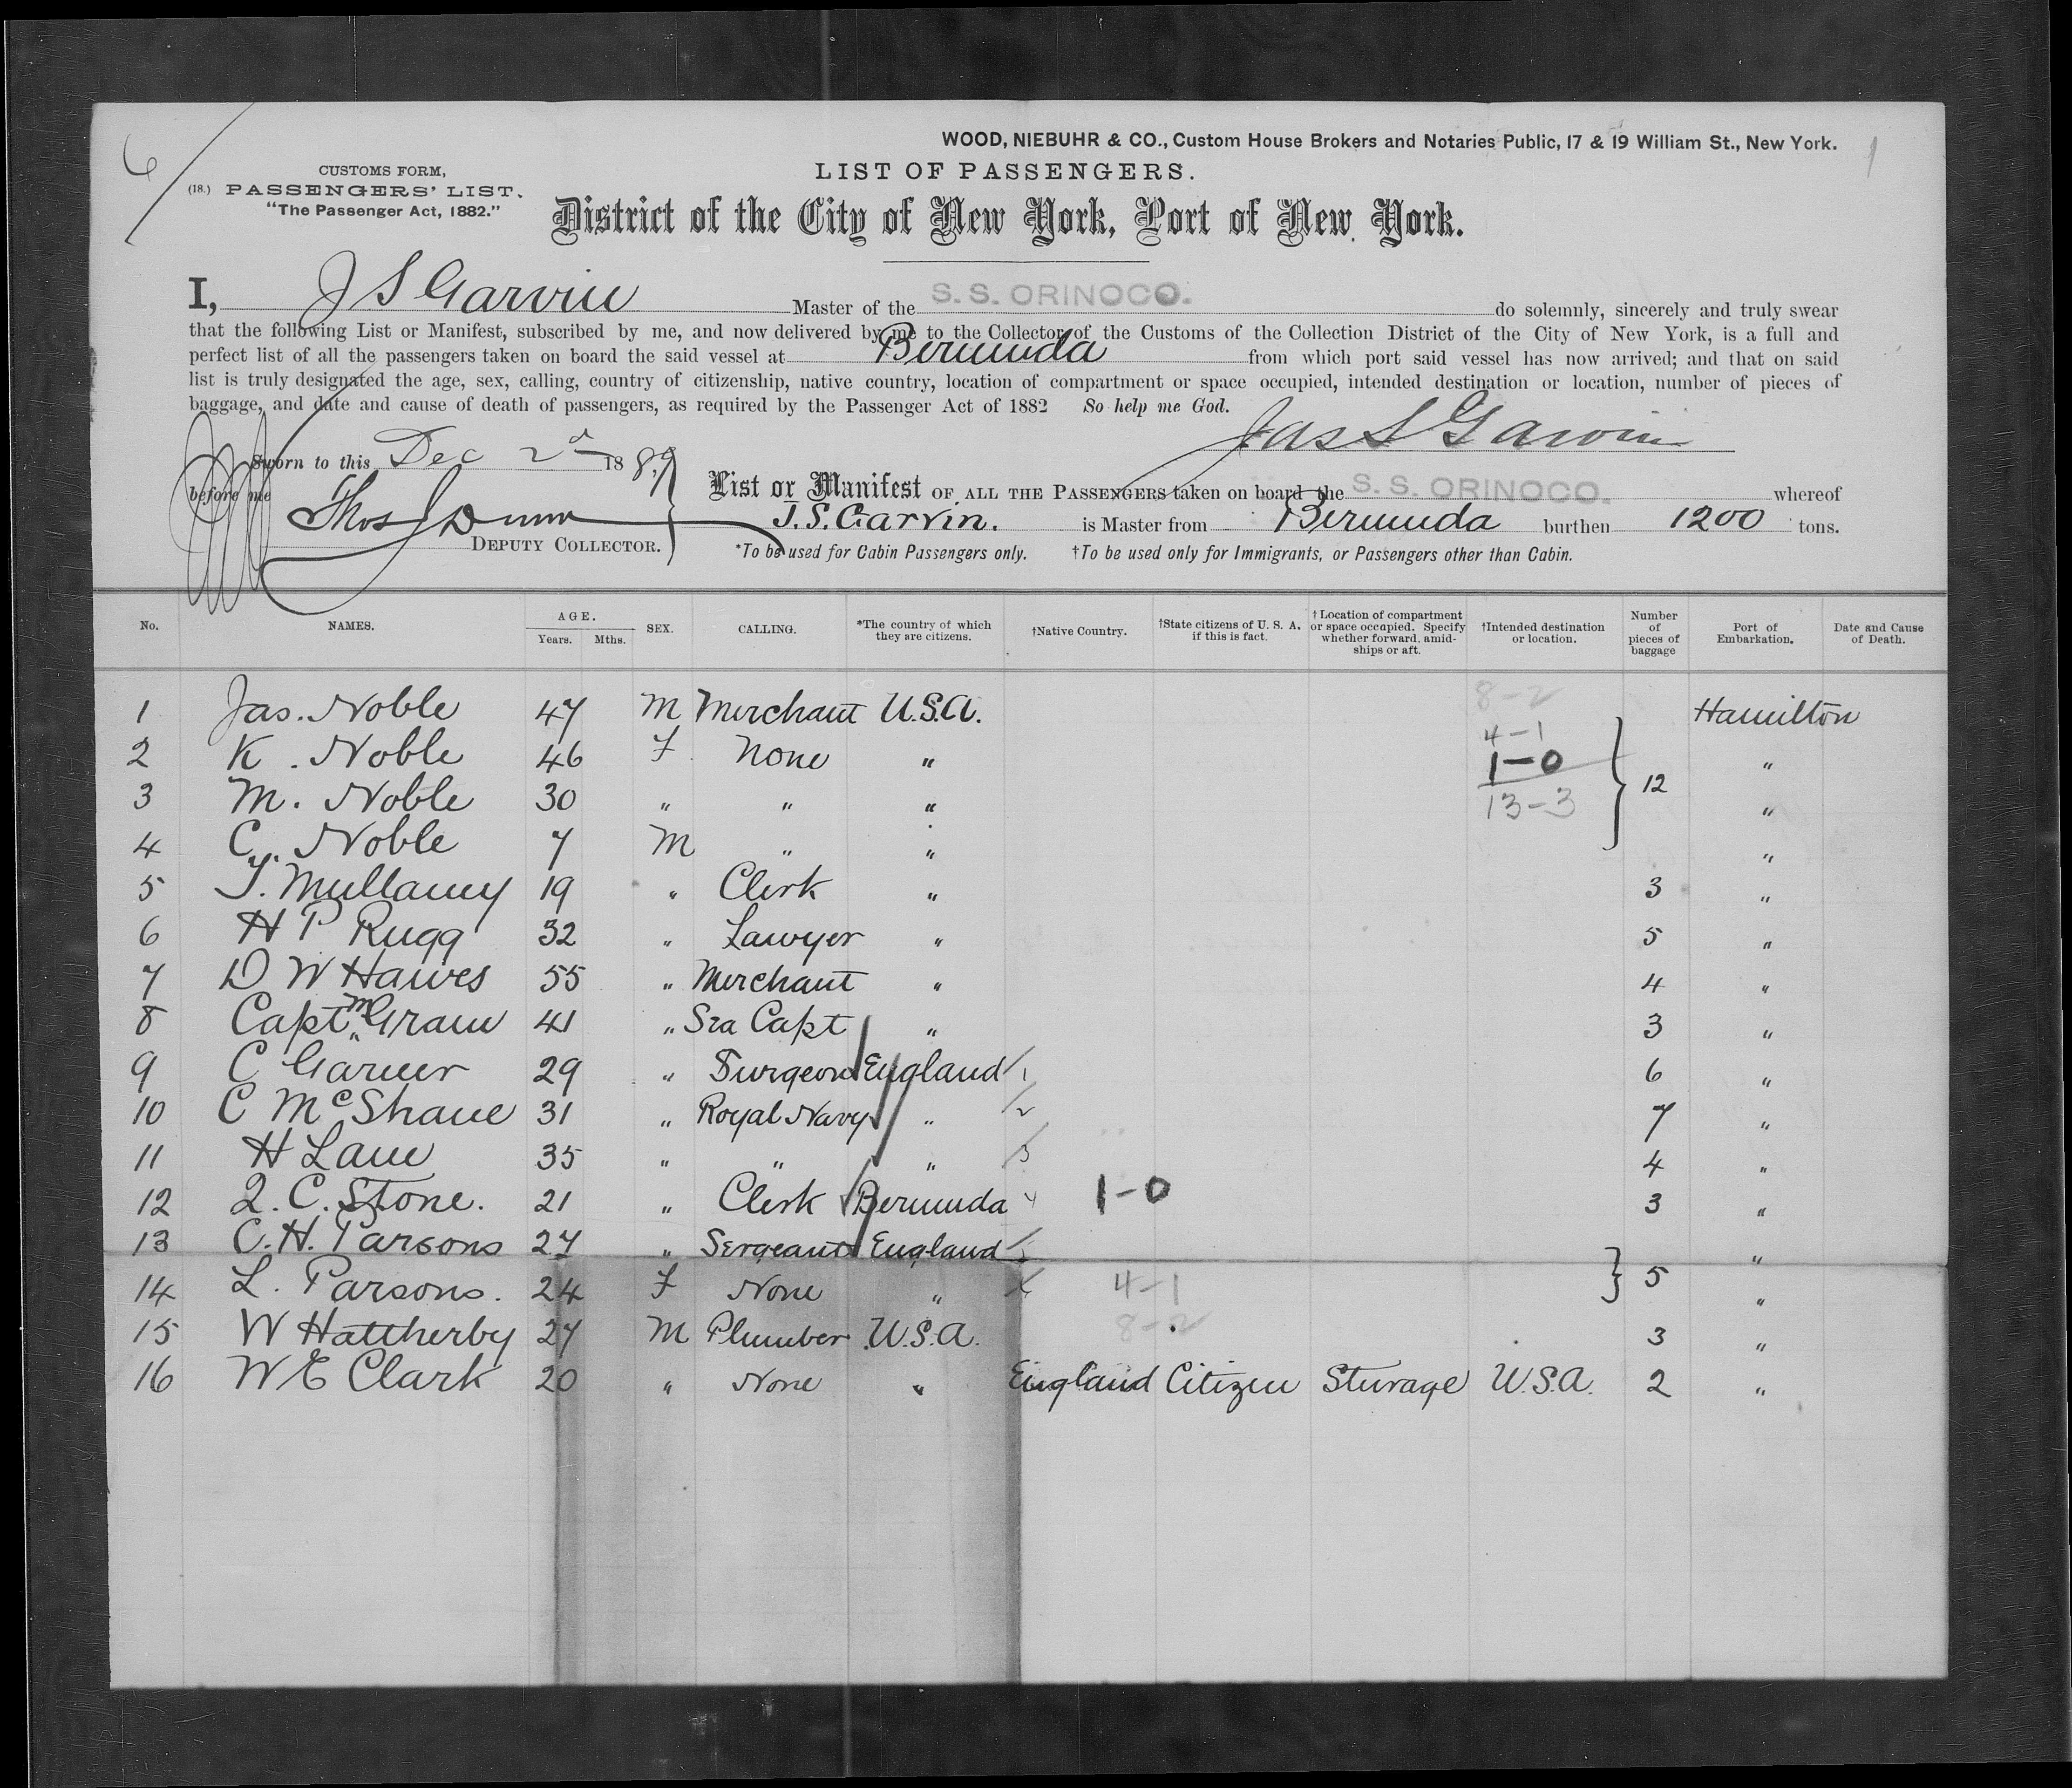 6
WOOD, NIEBUHR & CO., Custom House Brokers and Notaries Public, 17 & 19 William St., New York.
1
CUSTOMS FORM,
(18.) PASSENGERS' LIST.
"The Passenger Act, 1882."
LIST OF PASSENGERS.
District of the City of New York, Port of New York.
I, J S Garvin Master of the S. S. ORINOCO. do solemnly, sincerely and truly swear
that the following List or Manifest, subscribed by me, and now delivered by me to the Collector of the Customs of the Collection District of the City of New York, is a full and
perfect list of all the passengers taken on board the said vessel at Bermuda from which port said vessel has now arrived; and that on said
list is truly designated the age, sex, calling, country of citizenship, native country, location of compartment or space occupied, intended destination or location, number of pieces of
baggage, and date and cause of death of passengers, as required by the Passenger Act of 1882 So help me God.
Jas S Garvin
Sworn to this Dec 2d 1889
before me
Thos J Dunn
DEPUTY COLLECTOR.
List or Manifest OF ALL THE PASSENGERS taken on board the S. S. ORINOCO. whereof
J. S. Garvin. is Master from Bermuda burthen 1200 tons.
*To be used for Cabin Passengers only. †To be used only for Immigrants, or Passengers other than Cabin.
No. NAMES. AGE. Years. Mths. SEX. CALLING. *The country of which they are citizens. †Native Country. †State citizens of U. S. A. if this is fact. †Location of compartment or space occupied. Specify whether forward, amidships or aft. †Intended destination or location. Number of pieces of baggage Port of Embarkation. Date and Cause of Death.
8-2
1 Jas. Noble 47 M Merchant U.S.A. Hamilton
4-1
2 K. Noble 46 F None " 1-0 "
3 M. Noble 30 " " " 13-3 12 "
4 C. Noble 7 M " " "
5 T. Mullamy 19 " Clerk " 3 "
6 H P Rugg 32 " Lawyer " 5 "
7 D W Hawes 55 " Merchant " 4 "
8 Capt McGraw 41 " Sea Capt " 3 "
9 C Garner 29 " Surgeon England 1 6 "
10 C McShane 31 " Royal Navy " 2 7 "
11 H Lane 35 " " " 3 4 "
12 L. C. Stone. 21 " Clerk Bermuda 4 1-0 3 "
13 C. H. Parsons 27 " Sergeant England "
14 L. Parsons. 24 F None " 4-1 5 "
15 W Hattherby 27 M Plumber U.S.A. 8-2 3 "
16 W E Clark 20 " None " England Citizen Sturage U.S.A. 2 "